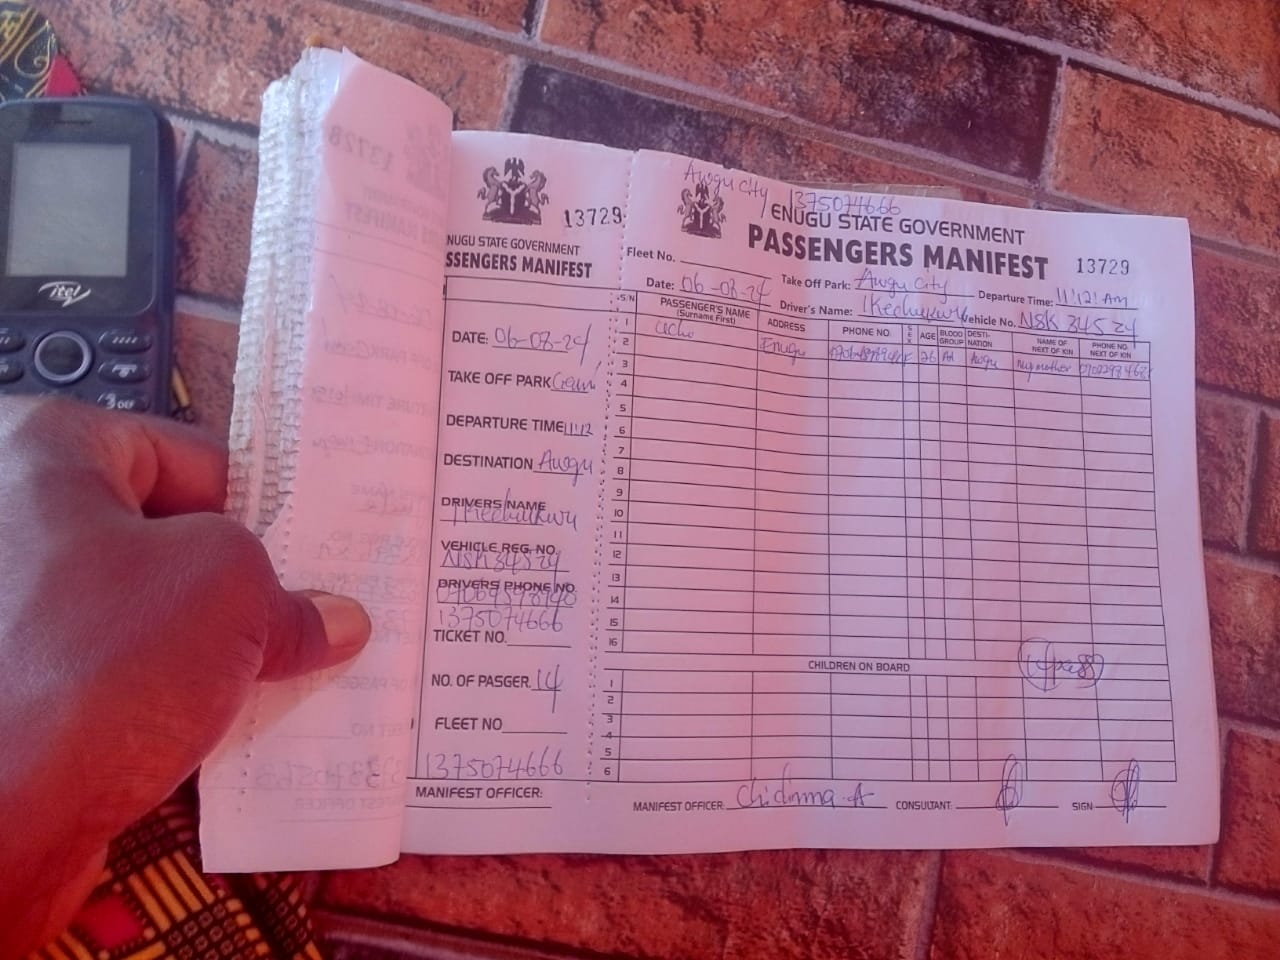 itel
13729
NUGU STATE GOVERNMENT
SSENGERS MANIFEST
DATE: 06-08-24
TAKE OFF PARK
DEPARTURE TIME 11:12
DESTINATION Awgu
DRIVERS NAME
Ikechukwu
VEHICLE REG. NO.
NSK 345 24
DRIVERS PHONE NO.
1375074666
TICKET NO.
NO. OF PASGER. 14
FLEET NO
1375074666
MANIFEST OFFICER:
Awgu City 1375074666
ENUGU STATE GOVERNMENT
PASSENGERS MANIFEST 13729
Fleet No.
Date: 06-08-24 Take Off Park: Awgu City Departure Time: 11:12 AM
Driver's Name: Ikechukwu Vehicle No. NSK 345 24
S/N PASSENGER'S NAME (Surname First) ADDRESS PHONE NO. SEX AGE BLOOD GROUP DESTI-NATION NAME OF NEXT OF KIN PHONE NO. NEXT OF KIN
1 Ucho Enugu F 26 AA Awgu My mother
2
3
4
5
6
7
8
9
10
11
12
13
14
15
16
14 pass
CHILDREN ON BOARD
1
2
3
4
5
6
MANIFEST OFFICER: Chidinma A CONSULTANT: SIGN